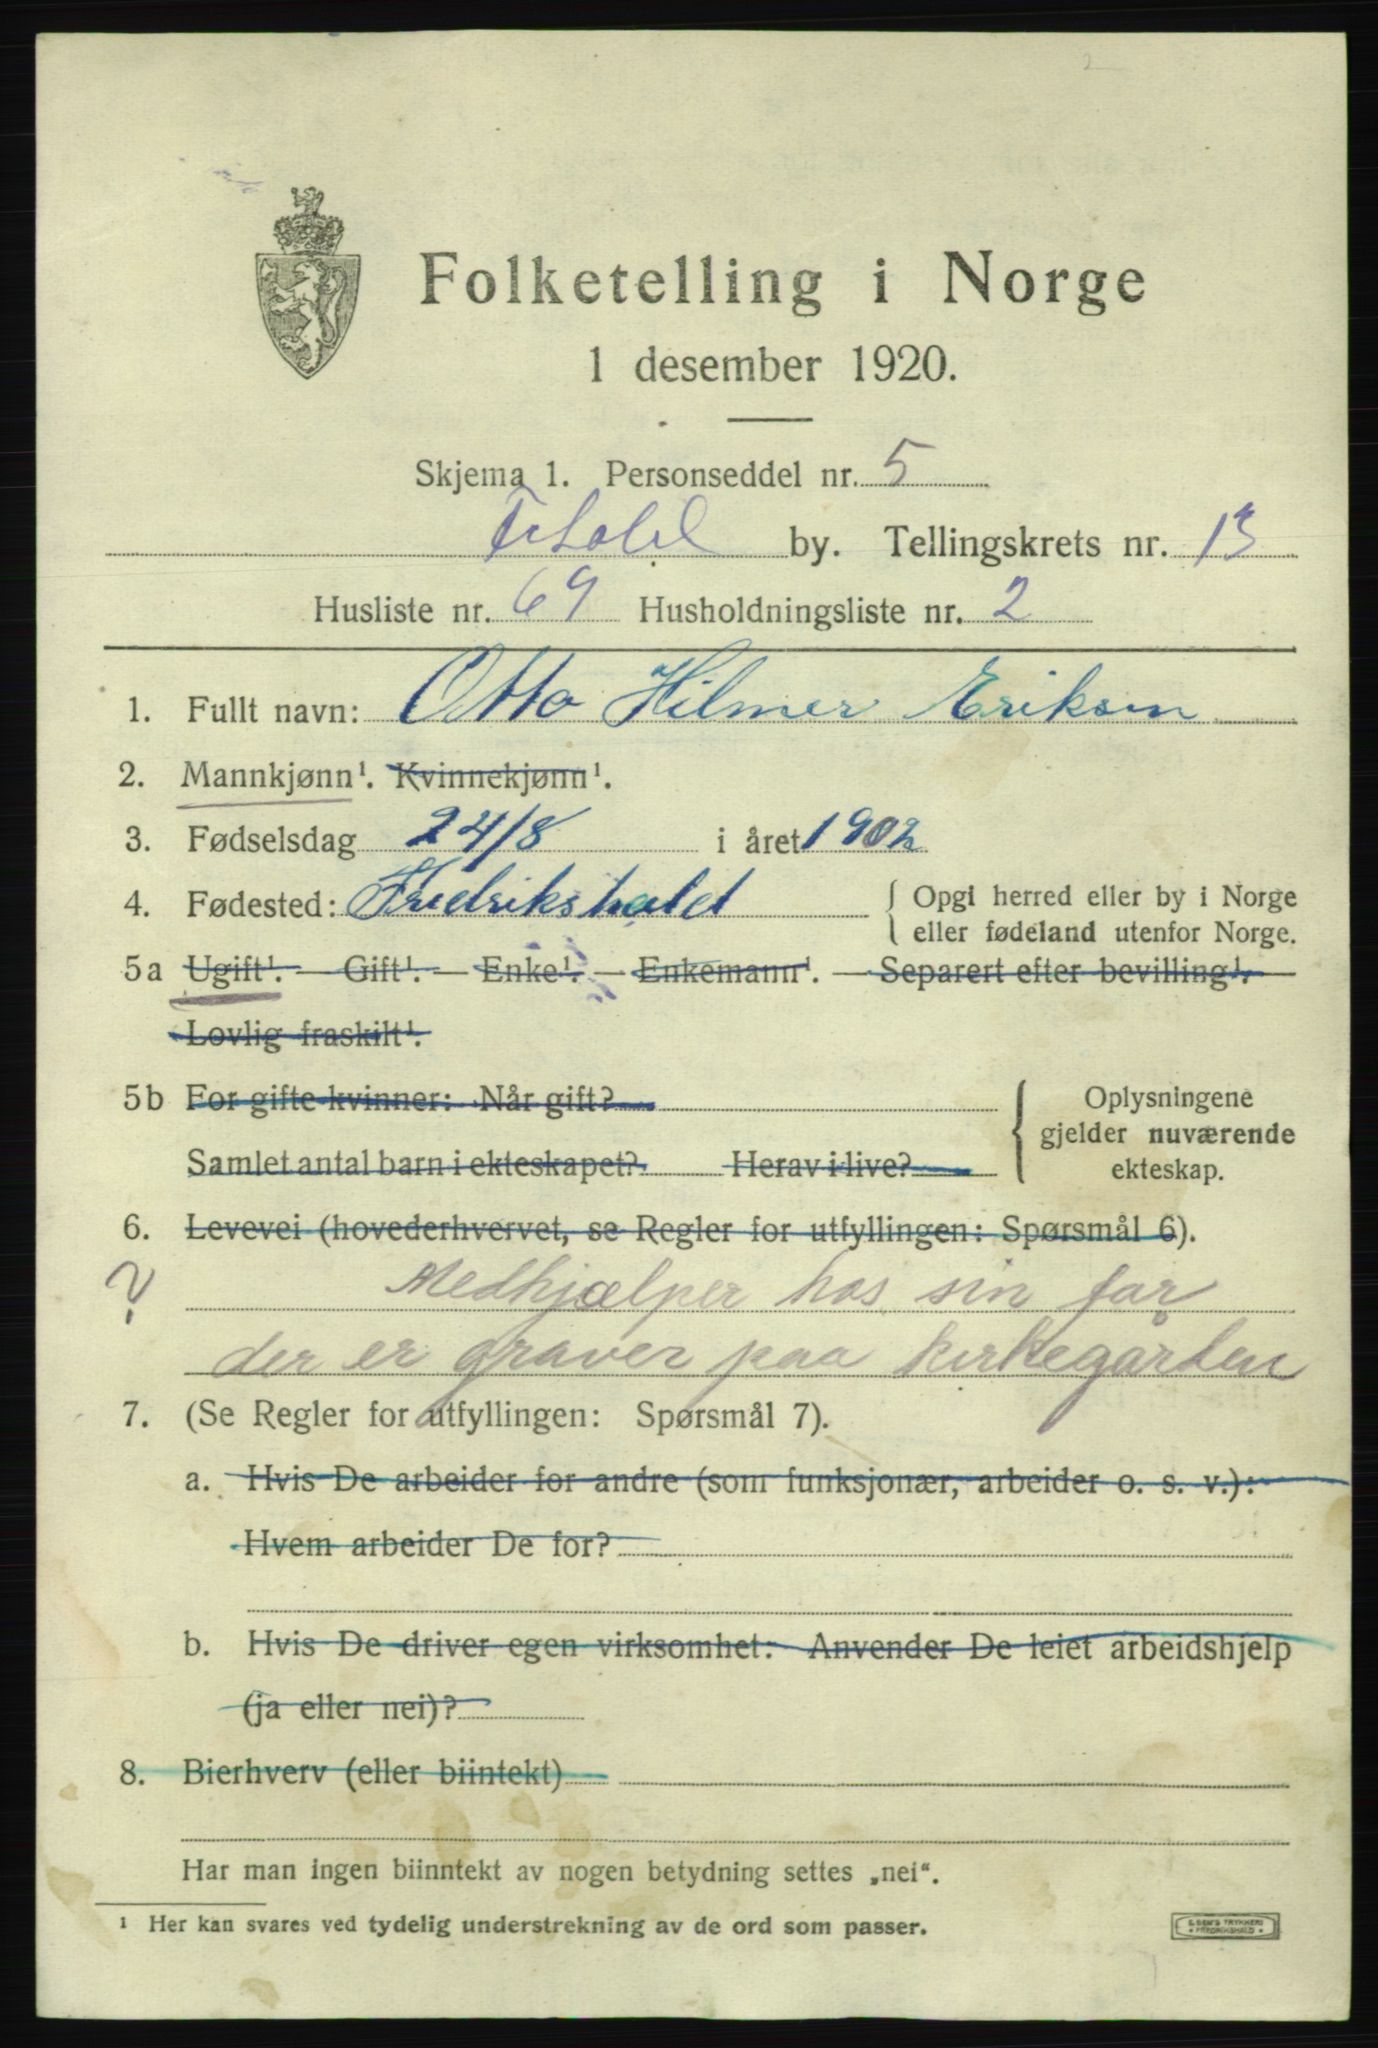 Folketelling i Norge
1 desember 1920.
Skjema 1. Personseddel nr. 5
Frhald by. Tellingskrets nr. 13
Husliste nr. 69 Husholdningsliste nr. 2
1. Fullt navn: Otto Hilmer Eriksen
2. Mannkjønn¹. Kvinnekjønn¹.
3. Fødselsdag 24/8 i året 1902
4. Fødested: Fredrikshald { Opgi herred eller by i Norge
eller fødeland utenfor Norge.
5a Ugift¹. — Gift¹. — Enke¹. — Enkemann¹. — Separert efter bevilling¹. —
Lovlig fraskilt¹.
5b For gifte kvinner: Når gift?
Samlet antal barn i ekteskapet? Herav i live?
Oplysningene
gjelder nuværende
ekteskap.
6. Levevei (hovederhvervet, se Regler for utfyllingen: Spørsmål 6).
? Medhjælper hos sin far
der er graver paa kirkegården
7. (Se Regler for utfyllingen: Spørsmål 7).
a. Hvis De arbeider for andre (som funksjonær, arbeider o. s. v.):
Hvem arbeider De for?
b. Hvis De driver egen virksomhet: Anvender De leiet arbeidshjelp
(ja eller nei)?
8. Bierhverv (eller biintekt)
Har man ingen biinntekt av nogen betydning settes „nei“.
¹ Her kan svares ved tydelig understrekning av de ord som passer.
TRYKKERI
FREDRIKSHALD